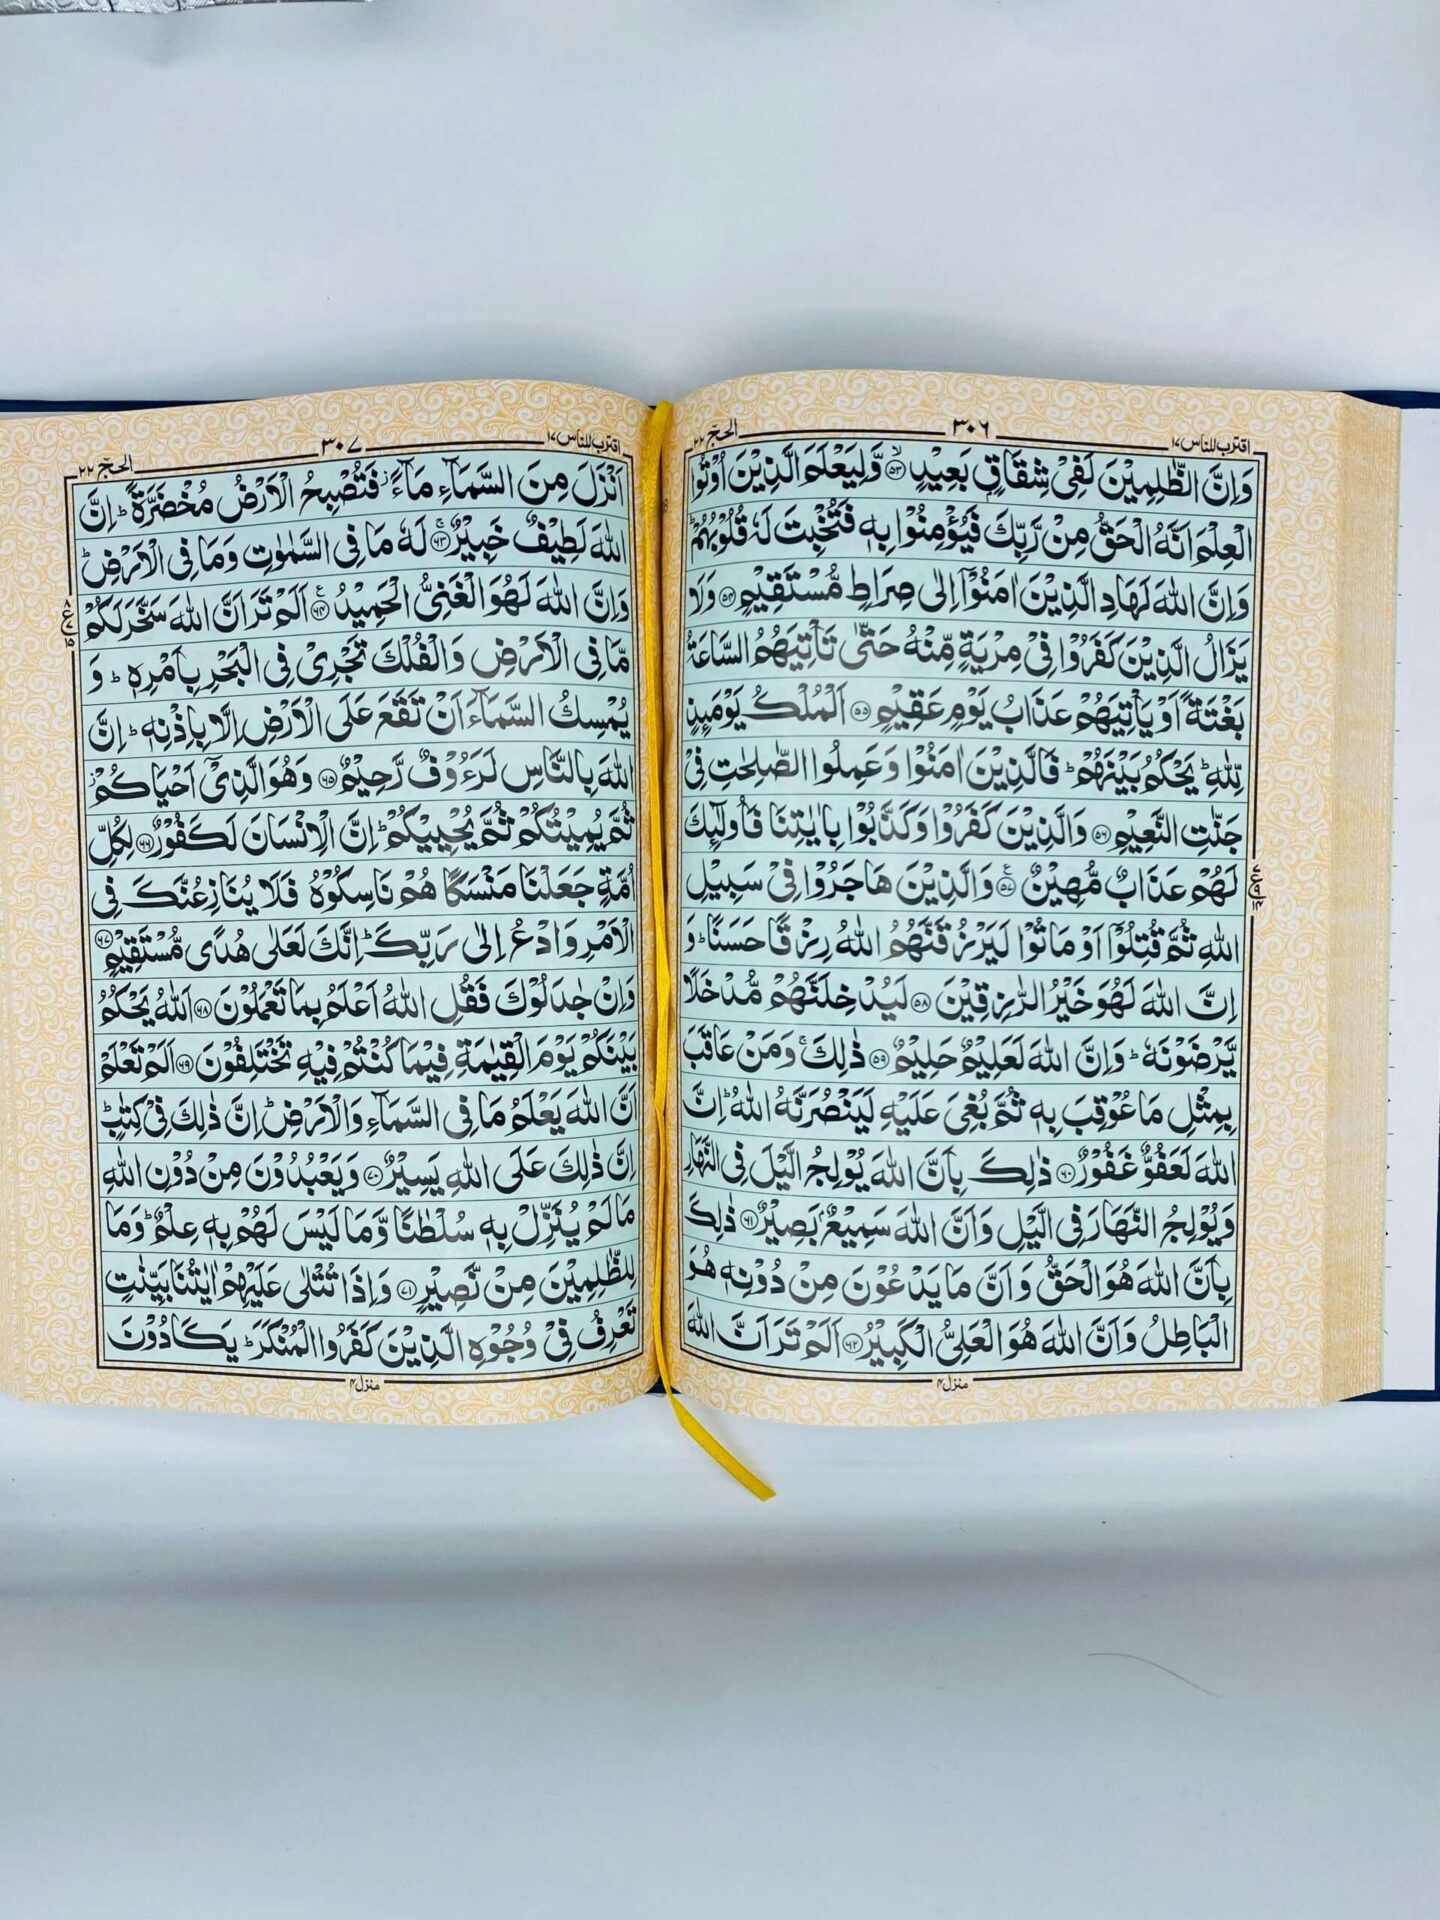 اقترب للناس ١٧
٣٠٦
الحج ٢٢
وَاِنَّ الظّٰلِمِيْنَ لَفِيْ شِقَاقٍۭ بَعِيْدٍ ۙ﴿٥٣﴾ وَّلِيَعْلَمَ الَّذِيْنَ اُوْتُوا
الْعِلْمَ اَنَّهُ الْحَقُّ مِنْ رَّبِّكَ فَيُؤْمِنُوْا بِهٖ فَتُخْبِتَ لَهٗ قُلُوْبُهُمْ ؕ
وَاِنَّ اللّٰهَ لَهَادِ الَّذِيْنَ اٰمَنُوْۤا اِلٰى صِرَاطٍ مُّسْتَقِيْمٍ ﴿٥٤﴾ وَلَا
يَزَالُ الَّذِيْنَ كَفَرُوْا فِيْ مِرْيَةٍ مِّنْهُ حَتّٰى تَاْتِيَهُمُ السَّاعَةُ
بَغْتَةً اَوْ يَاْتِيَهُمْ عَذَابُ يَوْمٍ عَقِيْمٍ ﴿٥٥﴾ اَلْمُلْكُ يَوْمَىِٕذٍ
لِّلّٰهِ ؕ يَحْكُمُ بَيْنَهُمْ ؕ فَالَّذِيْنَ اٰمَنُوْا وَعَمِلُوا الصّٰلِحٰتِ فِيْ
جَنّٰتِ النَّعِيْمِ ﴿٥٦﴾ وَالَّذِيْنَ كَفَرُوْا وَكَذَّبُوْا بِاٰيٰتِنَا فَاُولٰٓىِٕكَ
لَهُمْ عَذَابٌ مُّهِيْنٌ ۧ﴿٥٧﴾ وَالَّذِيْنَ هَاجَرُوْا فِيْ سَبِيْلِ
اللّٰهِ ثُمَّ قُتِلُوْۤا اَوْ مَاتُوْا لَيَرْزُقَنَّهُمُ اللّٰهُ رِزْقًا حَسَنًا ؕ وَ
اِنَّ اللّٰهَ لَهُوَ خَيْرُ الرّٰزِقِيْنَ ﴿٥٨﴾ لَيُدْخِلَنَّهُمْ مُّدْخَلًا
يَّرْضَوْنَهٗ ؕ وَاِنَّ اللّٰهَ لَعَلِيْمٌ حَلِيْمٌ ﴿٥٩﴾ ذٰلِكَ ۚ وَمَنْ عَاقَبَ
بِمِثْلِ مَا عُوْقِبَ بِهٖ ثُمَّ بُغِيَ عَلَيْهِ لَيَنْصُرَنَّهُ اللّٰهُ ؕ اِنَّ
اللّٰهَ لَعَفُوٌّ غَفُوْرٌ ﴿٦٠﴾ ذٰلِكَ بِاَنَّ اللّٰهَ يُوْلِجُ الَّيْلَ فِي النَّهَارِ
وَيُوْلِجُ النَّهَارَ فِي الَّيْلِ وَاَنَّ اللّٰهَ سَمِيْعٌۢ بَصِيْرٌ ﴿٦١﴾ ذٰلِكَ
بِاَنَّ اللّٰهَ هُوَ الْحَقُّ وَاَنَّ مَا يَدْعُوْنَ مِنْ دُوْنِهٖ هُوَ
الْبَاطِلُ وَاَنَّ اللّٰهَ هُوَ الْعَلِيُّ الْكَبِيْرُ ﴿٦٢﴾ اَلَمْ تَرَ اَنَّ اللّٰهَ
منزل ٤
اقترب للناس ١٧
٣٠٧
الحج ٢٢
اَنْزَلَ مِنَ السَّمَآءِ مَآءً ؗ فَتُصْبِحُ الْاَرْضُ مُخْضَرَّةً ؕ اِنَّ
اللّٰهَ لَطِيْفٌ خَبِيْرٌ ۚ﴿٦٣﴾ لَهٗ مَا فِي السَّمٰوٰتِ وَمَا فِي الْاَرْضِ ؕ
وَاِنَّ اللّٰهَ لَهُوَ الْغَنِيُّ الْحَمِيْدُ ۧ﴿٦٤﴾ اَلَمْ تَرَ اَنَّ اللّٰهَ سَخَّرَ لَكُمْ
مَّا فِي الْاَرْضِ وَالْفُلْكَ تَجْرِيْ فِي الْبَحْرِ بِاَمْرِهٖ ؕ وَ
يُمْسِكُ السَّمَآءَ اَنْ تَقَعَ عَلَى الْاَرْضِ اِلَّا بِاِذْنِهٖ ؕ اِنَّ
اللّٰهَ بِالنَّاسِ لَرَءُوْفٌ رَّحِيْمٌ ﴿٦٥﴾ وَهُوَ الَّذِيْۤ اَحْيَاكُمْ ؗ
ثُمَّ يُمِيْتُكُمْ ثُمَّ يُحْيِيْكُمْ ؕ اِنَّ الْاِنْسَانَ لَكَفُوْرٌ ﴿٦٦﴾ لِكُلِّ
اُمَّةٍ جَعَلْنَا مَنْسَكًا هُمْ نَاسِكُوْهُ فَلَا يُنَازِعُنَّكَ فِي
الْاَمْرِ وَادْعُ اِلٰى رَبِّكَ ؕ اِنَّكَ لَعَلٰى هُدًى مُّسْتَقِيْمٍ ﴿٦٧﴾
وَاِنْ جٰدَلُوْكَ فَقُلِ اللّٰهُ اَعْلَمُ بِمَا تَعْمَلُوْنَ ﴿٦٨﴾ اَللّٰهُ يَحْكُمُ
بَيْنَكُمْ يَوْمَ الْقِيٰمَةِ فِيْمَا كُنْتُمْ فِيْهِ تَخْتَلِفُوْنَ ﴿٦٩﴾ اَلَمْ تَعْلَمْ
اَنَّ اللّٰهَ يَعْلَمُ مَا فِي السَّمَآءِ وَالْاَرْضِ ؕ اِنَّ ذٰلِكَ فِيْ كِتٰبٍ ؕ
اِنَّ ذٰلِكَ عَلَى اللّٰهِ يَسِيْرٌ ﴿٧٠﴾ وَيَعْبُدُوْنَ مِنْ دُوْنِ اللّٰهِ
مَا لَمْ يُنَزِّلْ بِهٖ سُلْطٰنًا وَّمَا لَيْسَ لَهُمْ بِهٖ عِلْمٌ ؕ وَمَا
لِلظّٰلِمِيْنَ مِنْ نَّصِيْرٍ ﴿٧١﴾ وَاِذَا تُتْلٰى عَلَيْهِمْ اٰيٰتُنَا بَيِّنٰتٍ
تَعْرِفُ فِيْ وُجُوْهِ الَّذِيْنَ كَفَرُوا الْمُنْكَرَ ؕ يَكَادُوْنَ
منزل ٤